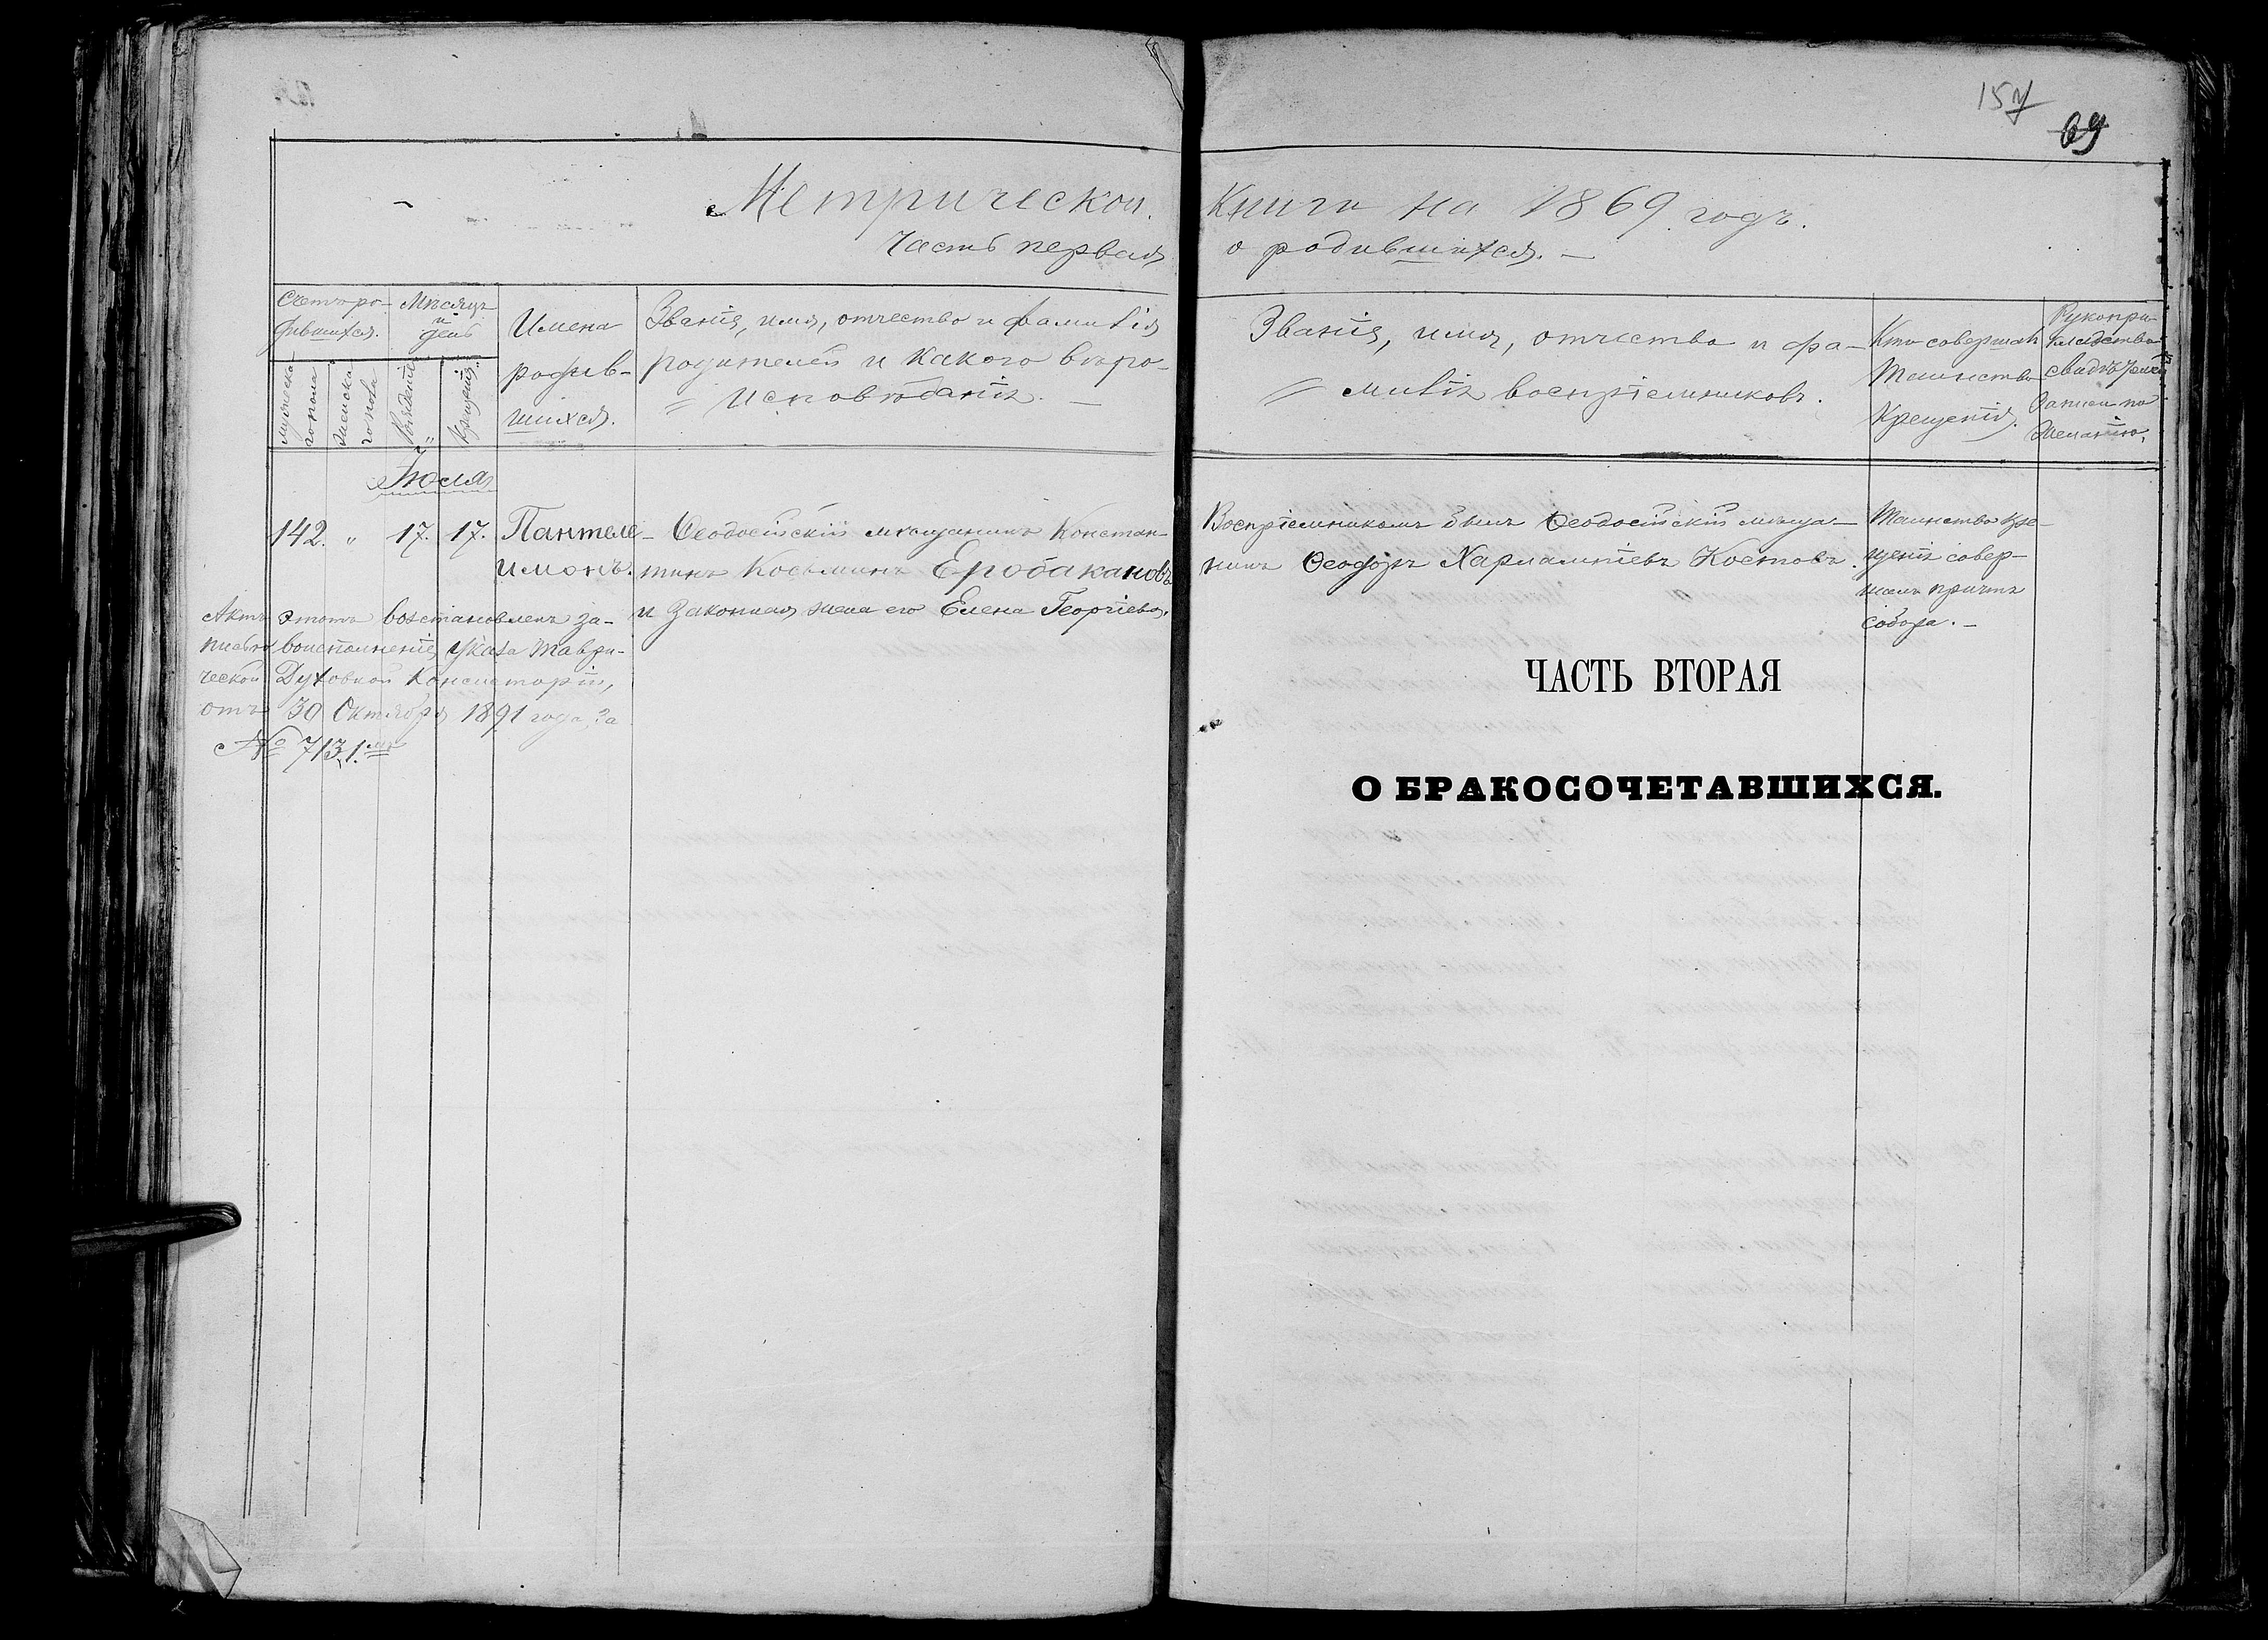 157
69
Метрической
Книги на 1869 годъ.
Часть первая
о родившихся. —
Счетъ ро-
дившихся.
Мѣсяцъ
и
день
Имена
родив-
шихся.
Званіе, имя, отчество и фамилія
родителей и какого вѣро-
исповѣданія. —
Званіе, имя, отчество и фа-
милія воспріемниковъ.
Кто совершалъ
Таинство
Крещенія.
Рукопри-
кладство
свидѣтелей
записи по
желанію.
мужска-
го пола
женска-
го пола
Рожденія
Крещенія
Іюля
142. " 17. 17. Пантеле-
имонъ.
Ѳеодосійскій мѣщанинъ Констан-
тинъ Косьминъ Еробакановъ
и законная жена его Елена Георгіева.
Воспріемникомъ былъ Ѳеодосійскій мѣща-
нинъ Ѳеодоръ Харлампіевъ Костовъ.
Таинство кре-
щенія совер-
шалъ причтъ
собора. —
Актъ этотъ возстановленъ за-
писью воисполненіе указа Таври-
ческой Духовной Консисторіи,
отъ 30 Октября 1891 года, за
№ 7131.
ЧАСТЬ ВТОРАЯ
О БРАКОСОЧЕТАВШИХСЯ.